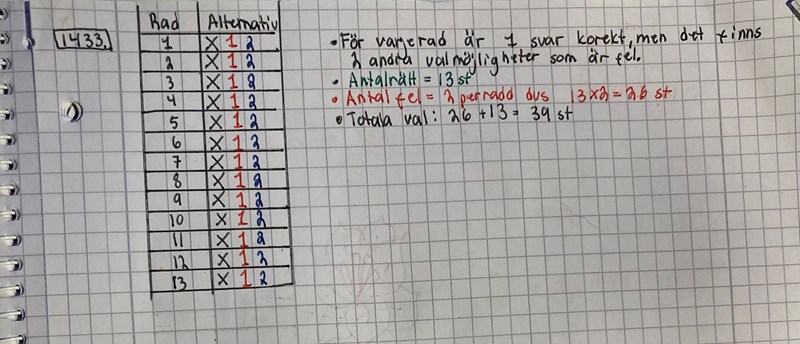 1433.
Rad Alternativ
1 X 1 2
2 X 1 2
3 X 1 2
4 X 1 2
5 X 1 2
6 X 1 2
7 X 1 2
8 X 1 2
9 X 1 2
10 X 1 2
11 X 1 2
12 X 1 2
13 X 1 2
• För varje rad är 1 svar korekt, men det finns
2 andra valmöjligheter som är fel.
• Antal rätt = 13 st
• Antal fel = 2 per radd dvs 13 x 2 = 26 st
• Totala val: 26 + 13 = 39 st